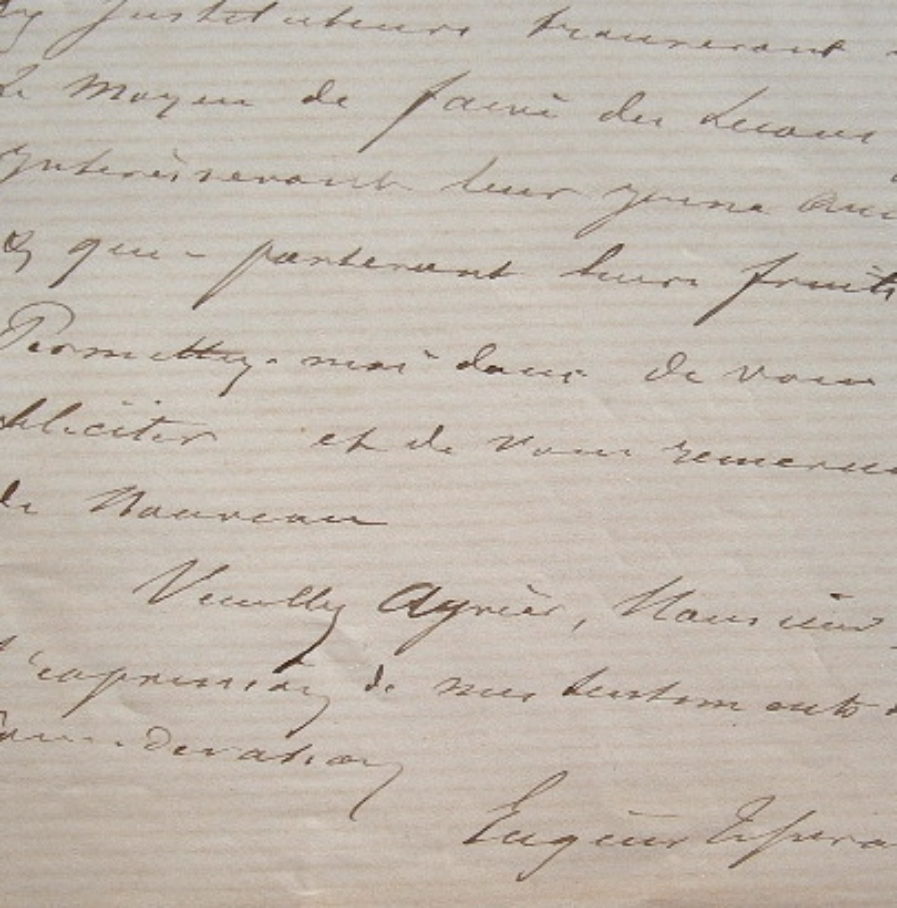 instituteurs trouveront
le moyen de faire des Lecons
Intéresseront leur jeune
& qui porteront leurs fruits
Permettez-moi donc de vous
féliciter et de vous
de Nouveau
Veuillez Agréer, Monsieur
l'expression de mes sentiments
considération
Eugène